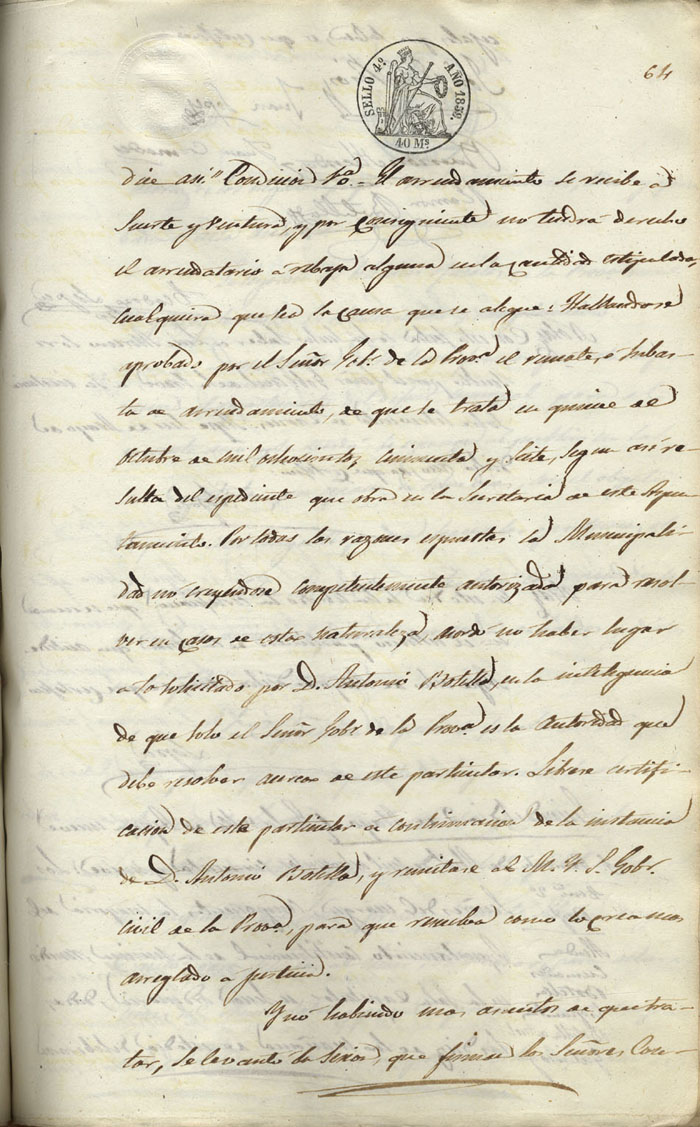 SELLO 4º AÑO 1859.
40 Ms
64
dice asi." Condicion 1ª.. El arrendamiento se recibe á
Suerte y Ventura, y por consiguiente no tendrá derecho
el arrendatario á rebaja alguna en la cantidad estipulada,
cualquiera que sea la causa que se alegue: Hallandose
aprobado por el Señor Gobr. de la Prova. el remate, ó Subas-
ta de arrendamiento, de que se trata en quince de
Octubre de mil ochocientos cincuenta y siete, segun asi re-
sulta del espediente que obra en la Secretaria de este Ayun-
tamiento. Por todas las razones espuestas la Municipali-
dad, no creyendose competentemente autorizada para resol-
ver en casos de esta naturaleza, acordó no haber lugar
a lo solicitado por D. Antonio Botella, en la inteligencia
de que solo el Señor Gobr. de la Prova. es la autoridad que
debe resolver acerca de este particular. Librese certifi-
cacion de este particular a continuacion de la instancia
de D. Antonio Botella, y remitase al M. Y. S. Gobr.
Civil de la Prova., para que resuelva como lo crea mas
arreglado a justicia.
Y no habiendo mas asuntos de que tra-
tar, se levantó la sesion, que firman los Señores Con-